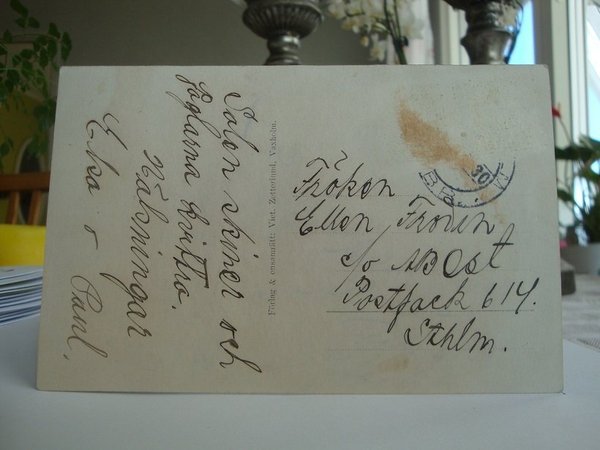 Solen skiner och
foglarna kvittra.
Hälsningar
Elsa o Paul.
Förlag & ensamrätt: Vict. Zetterlund, Vaxholm.
Fröken
Ellen Frodin
c/o
Postfack 614.
Sthlm.
30